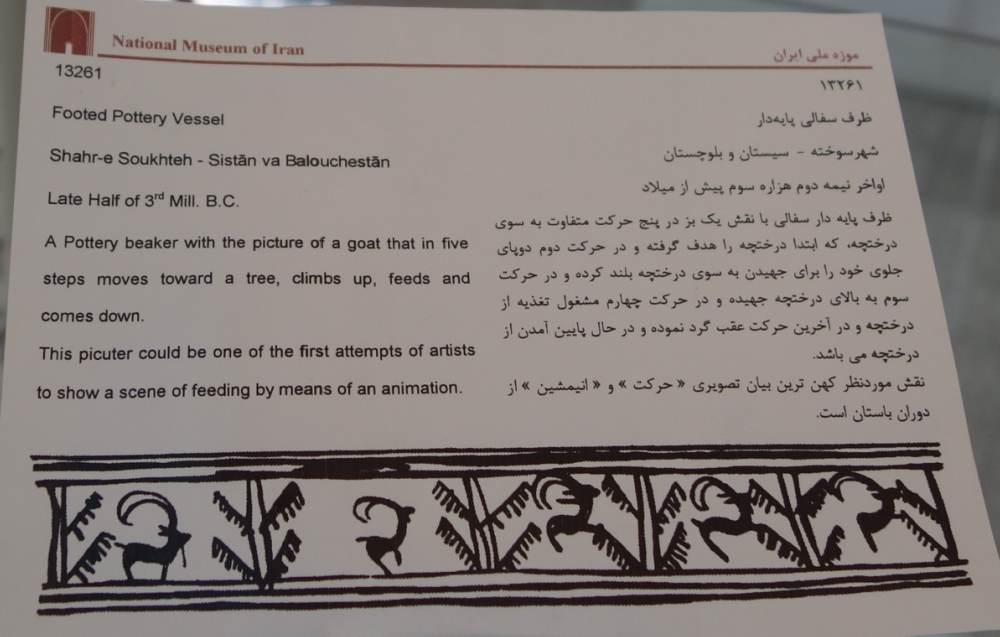 National Museum of Iran
13261
Footed Pottery Vessel
Shahr-e Soukhteh - Sistān va Balouchestān
Late Half of 3rd Mill. B.C.
A Pottery beaker with the picture of a goat that in five
steps moves toward a tree, climbs up, feeds and
comes down.
This picuter could be one of the first attempts of artists
to show a scene of feeding by means of an animation.
موزه ملی ایران
۱۳۲۶۱
ظرف سفالی پایه‌دار
شهرسوخته - سیستان و بلوچستان
اواخر نیمه دوم هزاره سوم پیش از میلاد
ظرف پایه دار سفالی با نقش یک بز در پنج حرکت متفاوت به سوی
درختچه، که ابتدا درختچه را هدف گرفته و در حرکت دوم دوپای
جلوی خود را برای جهیدن به سوی درختچه بلند کرده و در حرکت
سوم به بالای درختچه جهیده و در حرکت چهارم مشغول تغذیه از
درختچه و در آخرین حرکت عقب گرد نموده و در حال پایین آمدن از
درختچه می باشد.
نقش موردنظر کهن ترین بیان تصویری « حرکت » و « انیمشین » از
دوران باستان است.